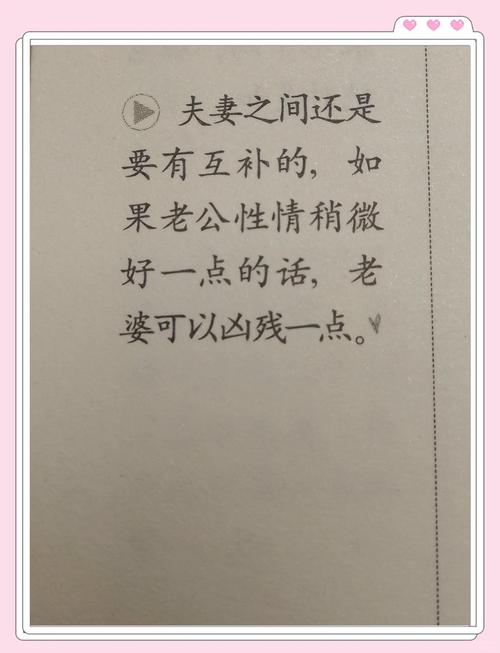 夫妻之间还是
要有互补的，如
果老公性情稍微
好一点的话，老
婆可以凶残一点。